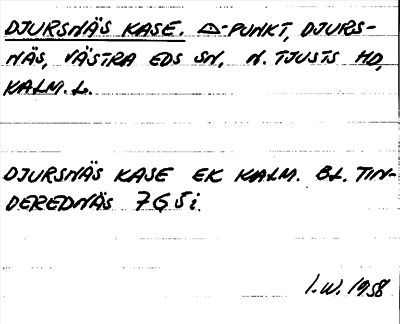 DJURSNÄS KASE. △-PUNKT, DJURS-
NÄS, VÄSTRA EDS SN, N. TJUSTS HD,
KALM. L.
DJURSNÄS KASE EK KALM. BL. TIN-
DEREDNÄS 7G5i.
I.W. 1958